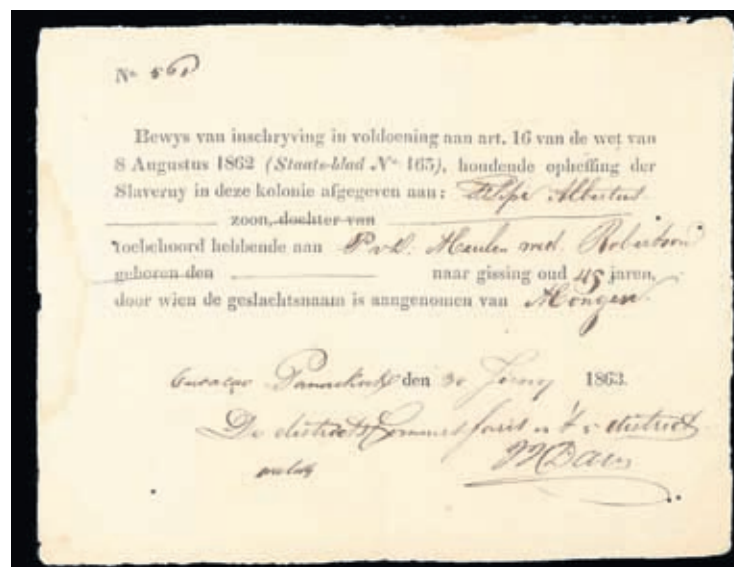 No. 561
Bewys van inschryving in voldoening aan art. 16 van de wet van
8 Augustus 1862 (Staats-blad No. 165), houdende opheffing der
Slaverny in deze kolonie afgegeven aan: Felipe Albertus
zoon, dochter van
toebehoord hebbende aan P v.d. Meulen wed. Robertson
geboren den naar gissing oud 45 jaren,
door wien de geslachtsnaam is aangenomen van Mongen.
Curaçao den 30 Juny 1863.
De districts Commissaris district